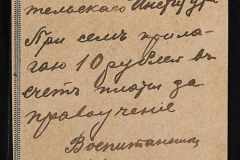 тельскаго Институт
При семъ прила-
гаю 10 рублей въ
счетъ платы за
правоучение
Воспитанниц